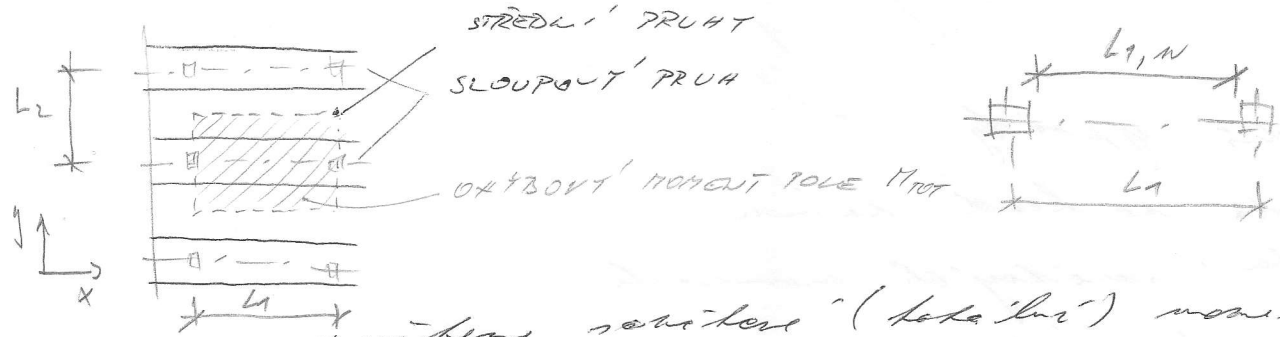 STŘEDNÍ PRUHY
SLOUPOVÝ PRUH
L2
OHYBOVÝ MOMENT POLE MTOT
y
x
L1
L1,N
L1
(totální)